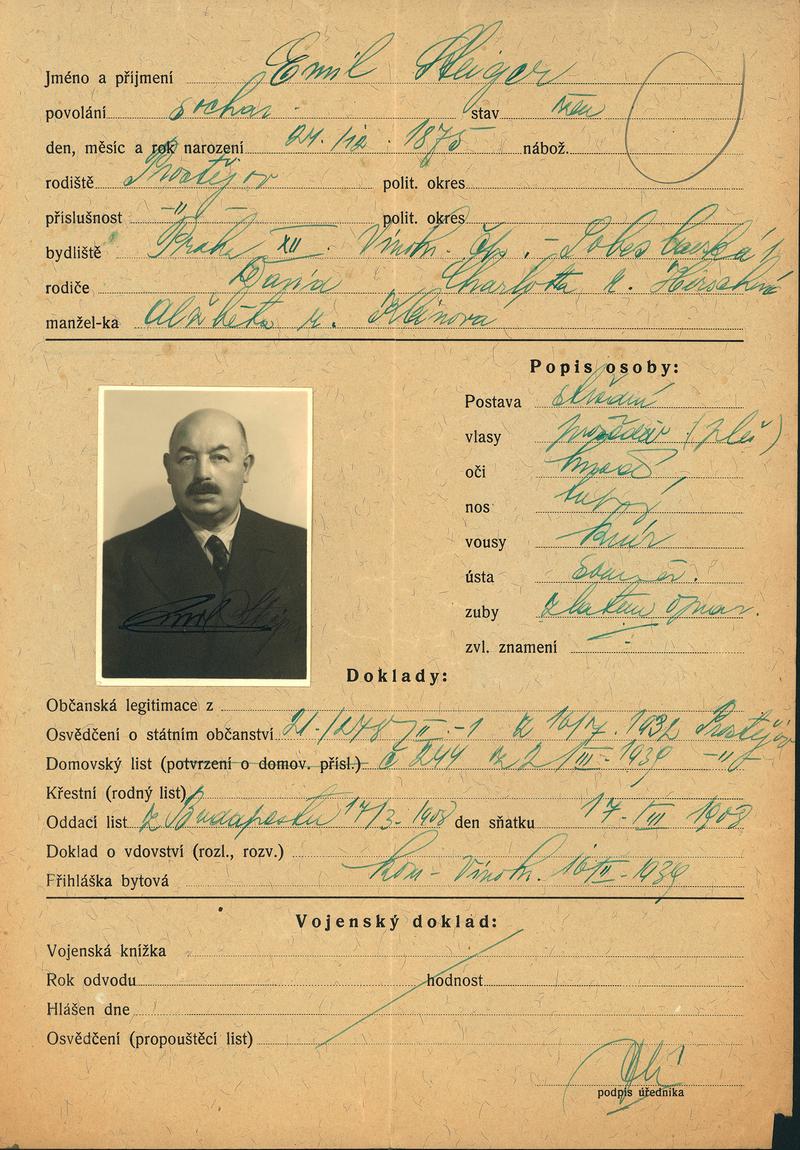 Jméno a příjmení Emil Steiger
povolání sochař stav žen
den, měsíc a rok narození 21./12. 1875 nábož.
rodiště Prostějov polit. okres
příslušnost -"- polit. okres
bydliště Praha XII. Vinohr. čp. -
rodiče David, Charlotta r. Herschová
manžel-ka Alžběta r. Kleinova
Popis osoby:
Postava střední
vlasy prošediv. (pleš)
oči hnědé
nos tupý
vousy knír
ústa souměr.
zuby zlatem oprav.
zvl. znamení -
Emil
Doklady:
Občanská legitimace z
Osvědčení o státním občanství z 16/7. 1932 Prostějov
Domovský list (potvrzení o domov. přísl.) č 244 z 2/III - 1939 -"-
Křestní (rodný list)
Oddací list z Budapestu 17/3 - 1908 den sňatku 17 - III 1908
Doklad o vdovství (rozl., rozv.)
Přihláška bytová kom - Vinoh. 16/II - 1939
Vojenský doklad:
Vojenská knížka
Rok odvodu hodnost
Hlášen dne
Osvědčení (propouštěcí list)
podpis úředníka